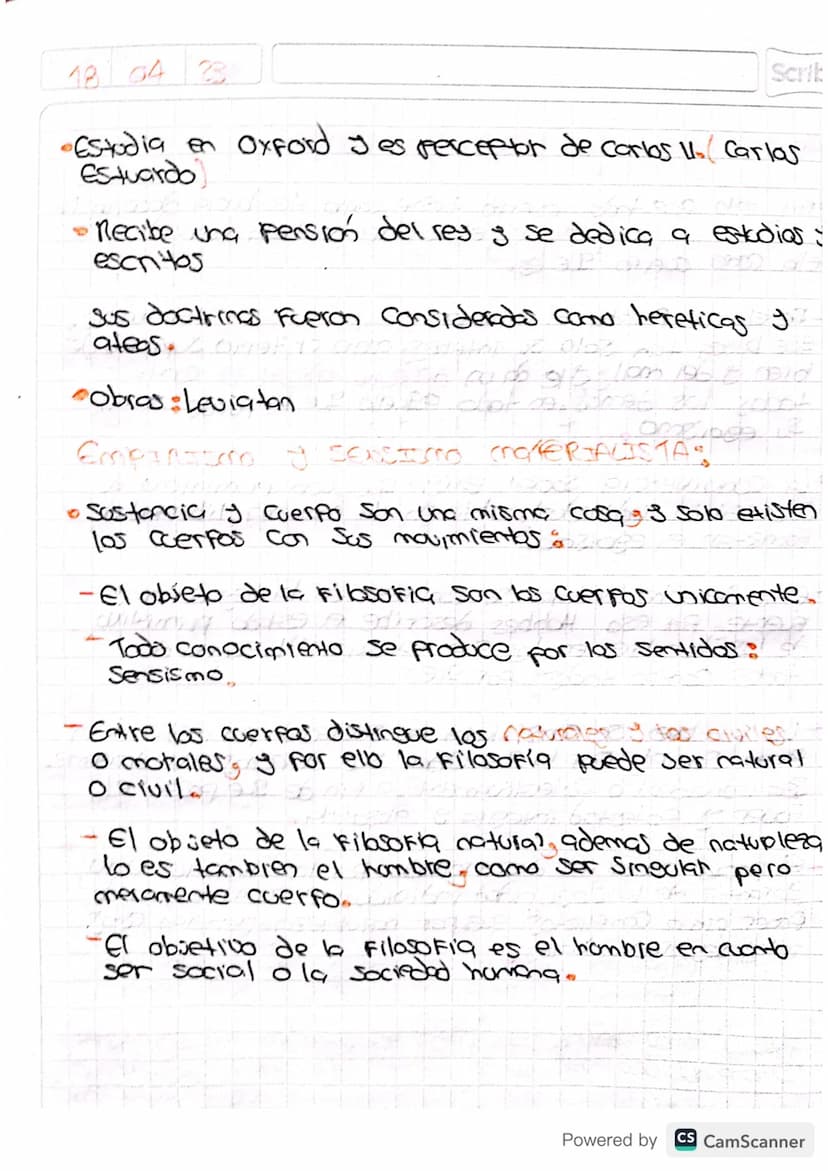 18 04 23
Scrib
•Estudia en Oxford y es perceptor de Carlos II. (Carlos
Estuardo)
• Recibe una pensión del rey y se dedica a estudios y
escritos
Sus doctrinas fueron consideradas como hereticas y
ateas.
•Obras: Leviatan
Empirismo y SENSISMO MATERIALISTA:
• Sustancia y cuerpo son una misma cosa, y solo existen
los cuerpos con sus movimientos:
- El objeto de la Filosofia son los cuerpos unicamente.
- Todo conocimiento se produce por los sentidos:
Sensismo.
- Entre los cuerpos distingue los naturales y los civiles
o morales, y por ello la Filosofía puede ser natural
o civil.
- El objeto de la Filosofia natural, ademas de naturaleza
lo es tambien el hombre, como ser singular pero
meramente cuerpo.
- El objetivo de la Filosofia es el hombre en cuanto
ser social o la sociedad humana.
Powered by CS CamScanner